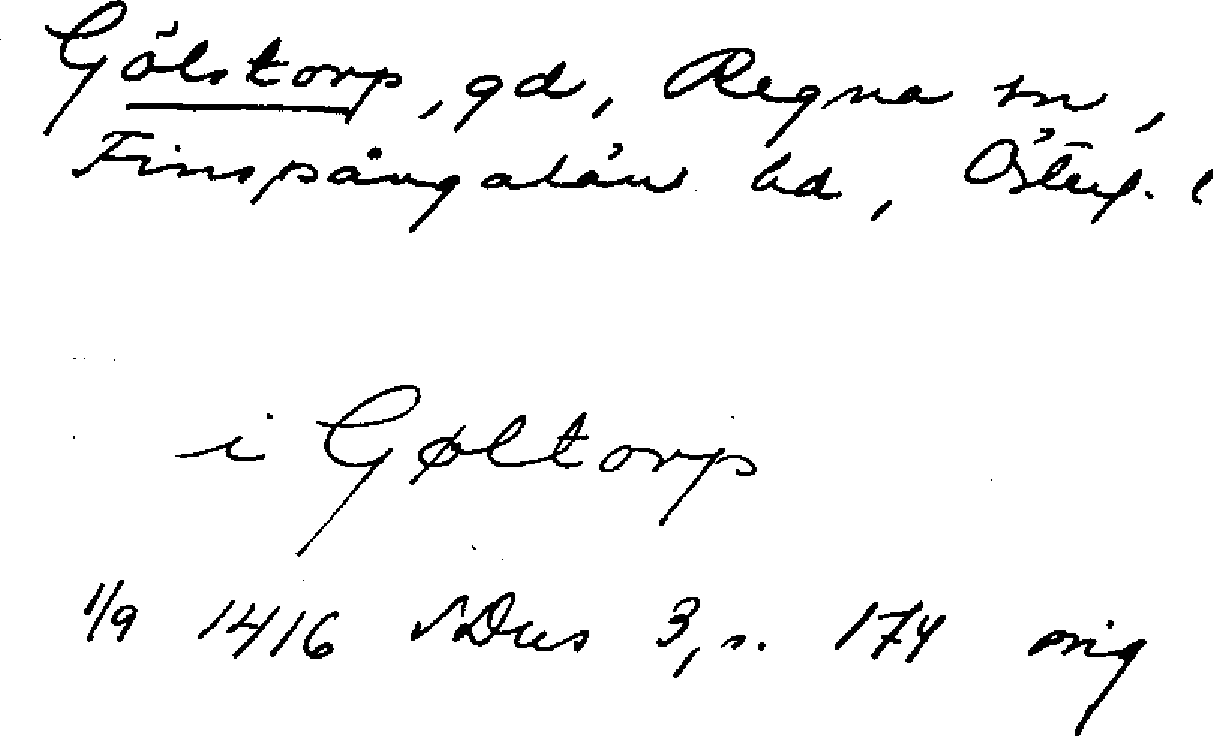 Gölstorp, gd, Regna sn,
Finspångalän hd, Östergl. l
i Gøltorp
1/9 1416 SDns 3, s. 174 orig